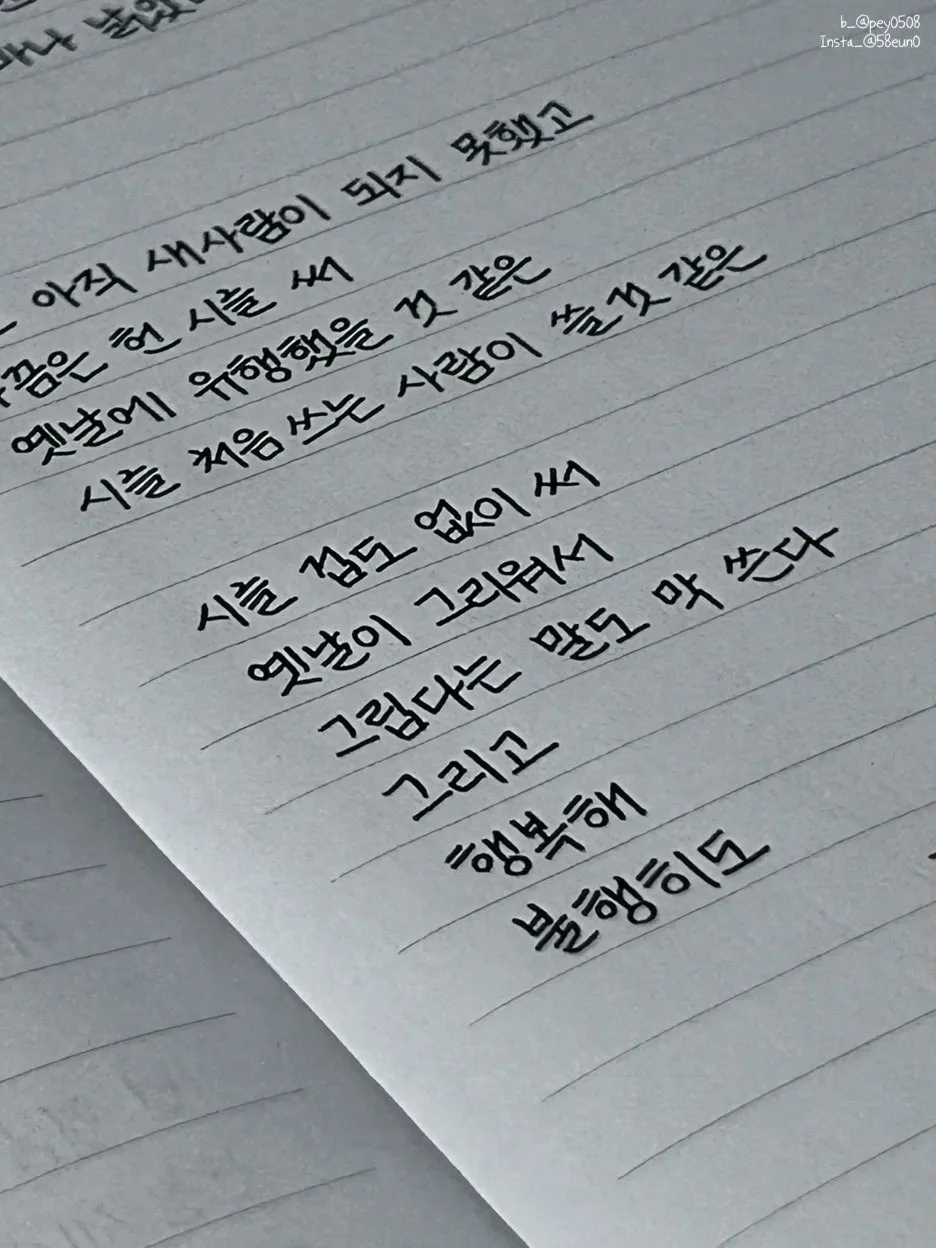 b_@pey0508
Insta_@58eun0
아직 새사람이 되지 못했고
헌 시를 써
옛날에 유행했을 것 같은
시를 처음 쓰는 사람이 쓸것 같은
시를 겁도 없이 써
옛날이 그리워서
그립다는 말도 막 쓴다
그리고
행복해
불행히도